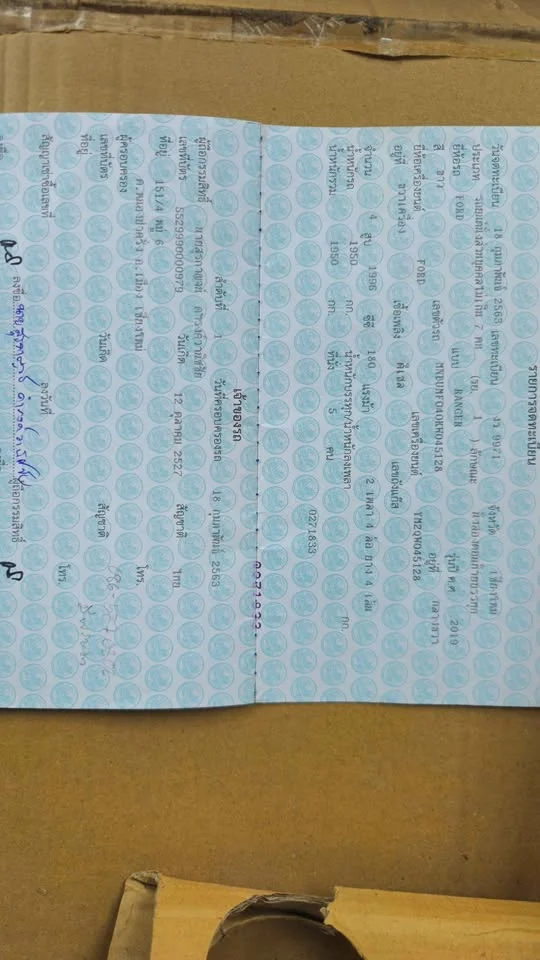 รายการจดทะเบียน
วันจดทะเบียน 18 กุมภาพันธ์ 2563 เลขทะเบียน 9971 จังหวัด เชียงใหม่
ประเภท รถยนต์นั่งส่วนบุคคลไม่เกิน 7 คน (รย. 1 ) ลักษณะ
ยี่ห้อรถ FORD แบบ RANGER รุ่นปี ค.ศ. 2019
สี ขาว เลขตัวรถ อยู่ที่ กลางขวา
ยี่ห้อเครื่องยนต์ FORD เลขเครื่องยนต์
อยู่ที่ ขวาเครื่อง เชื้อเพลิง ดีเซล เลขถังแก๊ส
จำนวน 4 สูบ 1996 ซีซี 180 แรงม้า 2 เพลา 4 ล้อ ยาง 4 เส้น
น้ำหนักรถ 1950 กก. น้ำหนักบรรทุก/น้ำหนักลงเพลา กก.
น้ำหนักรวม 1950 กก. ที่นั่ง 5 คน
0271833
เจ้าของรถ
ลำดับที่ 1 วันที่ครอบครองรถ 18 กุมภาพันธ์ 2563
ผู้ถือกรรมสิทธิ์
เลขที่บัตร 5529990000979 วันเกิด 12 ตุลาคม 2527 สัญชาติ ไทย
ที่อยู่ 151/4 หมู่ 6 โทร.
อ.เมือง เชียงใหม่
ผู้ครอบครอง
เลขที่บัตร วันเกิด สัญชาติ
ที่อยู่ โทร.
สัญญาเช่าซื้อเลขที่ ลงวันที่
ลงชื่อ ผู้ถือกรรมสิทธิ์